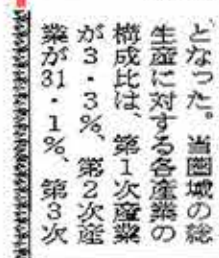 となった。当圏域の総
生産に対する各産業の
構成比は、第1次産業
が3・3%、第2次産
業が31・1%、第3次